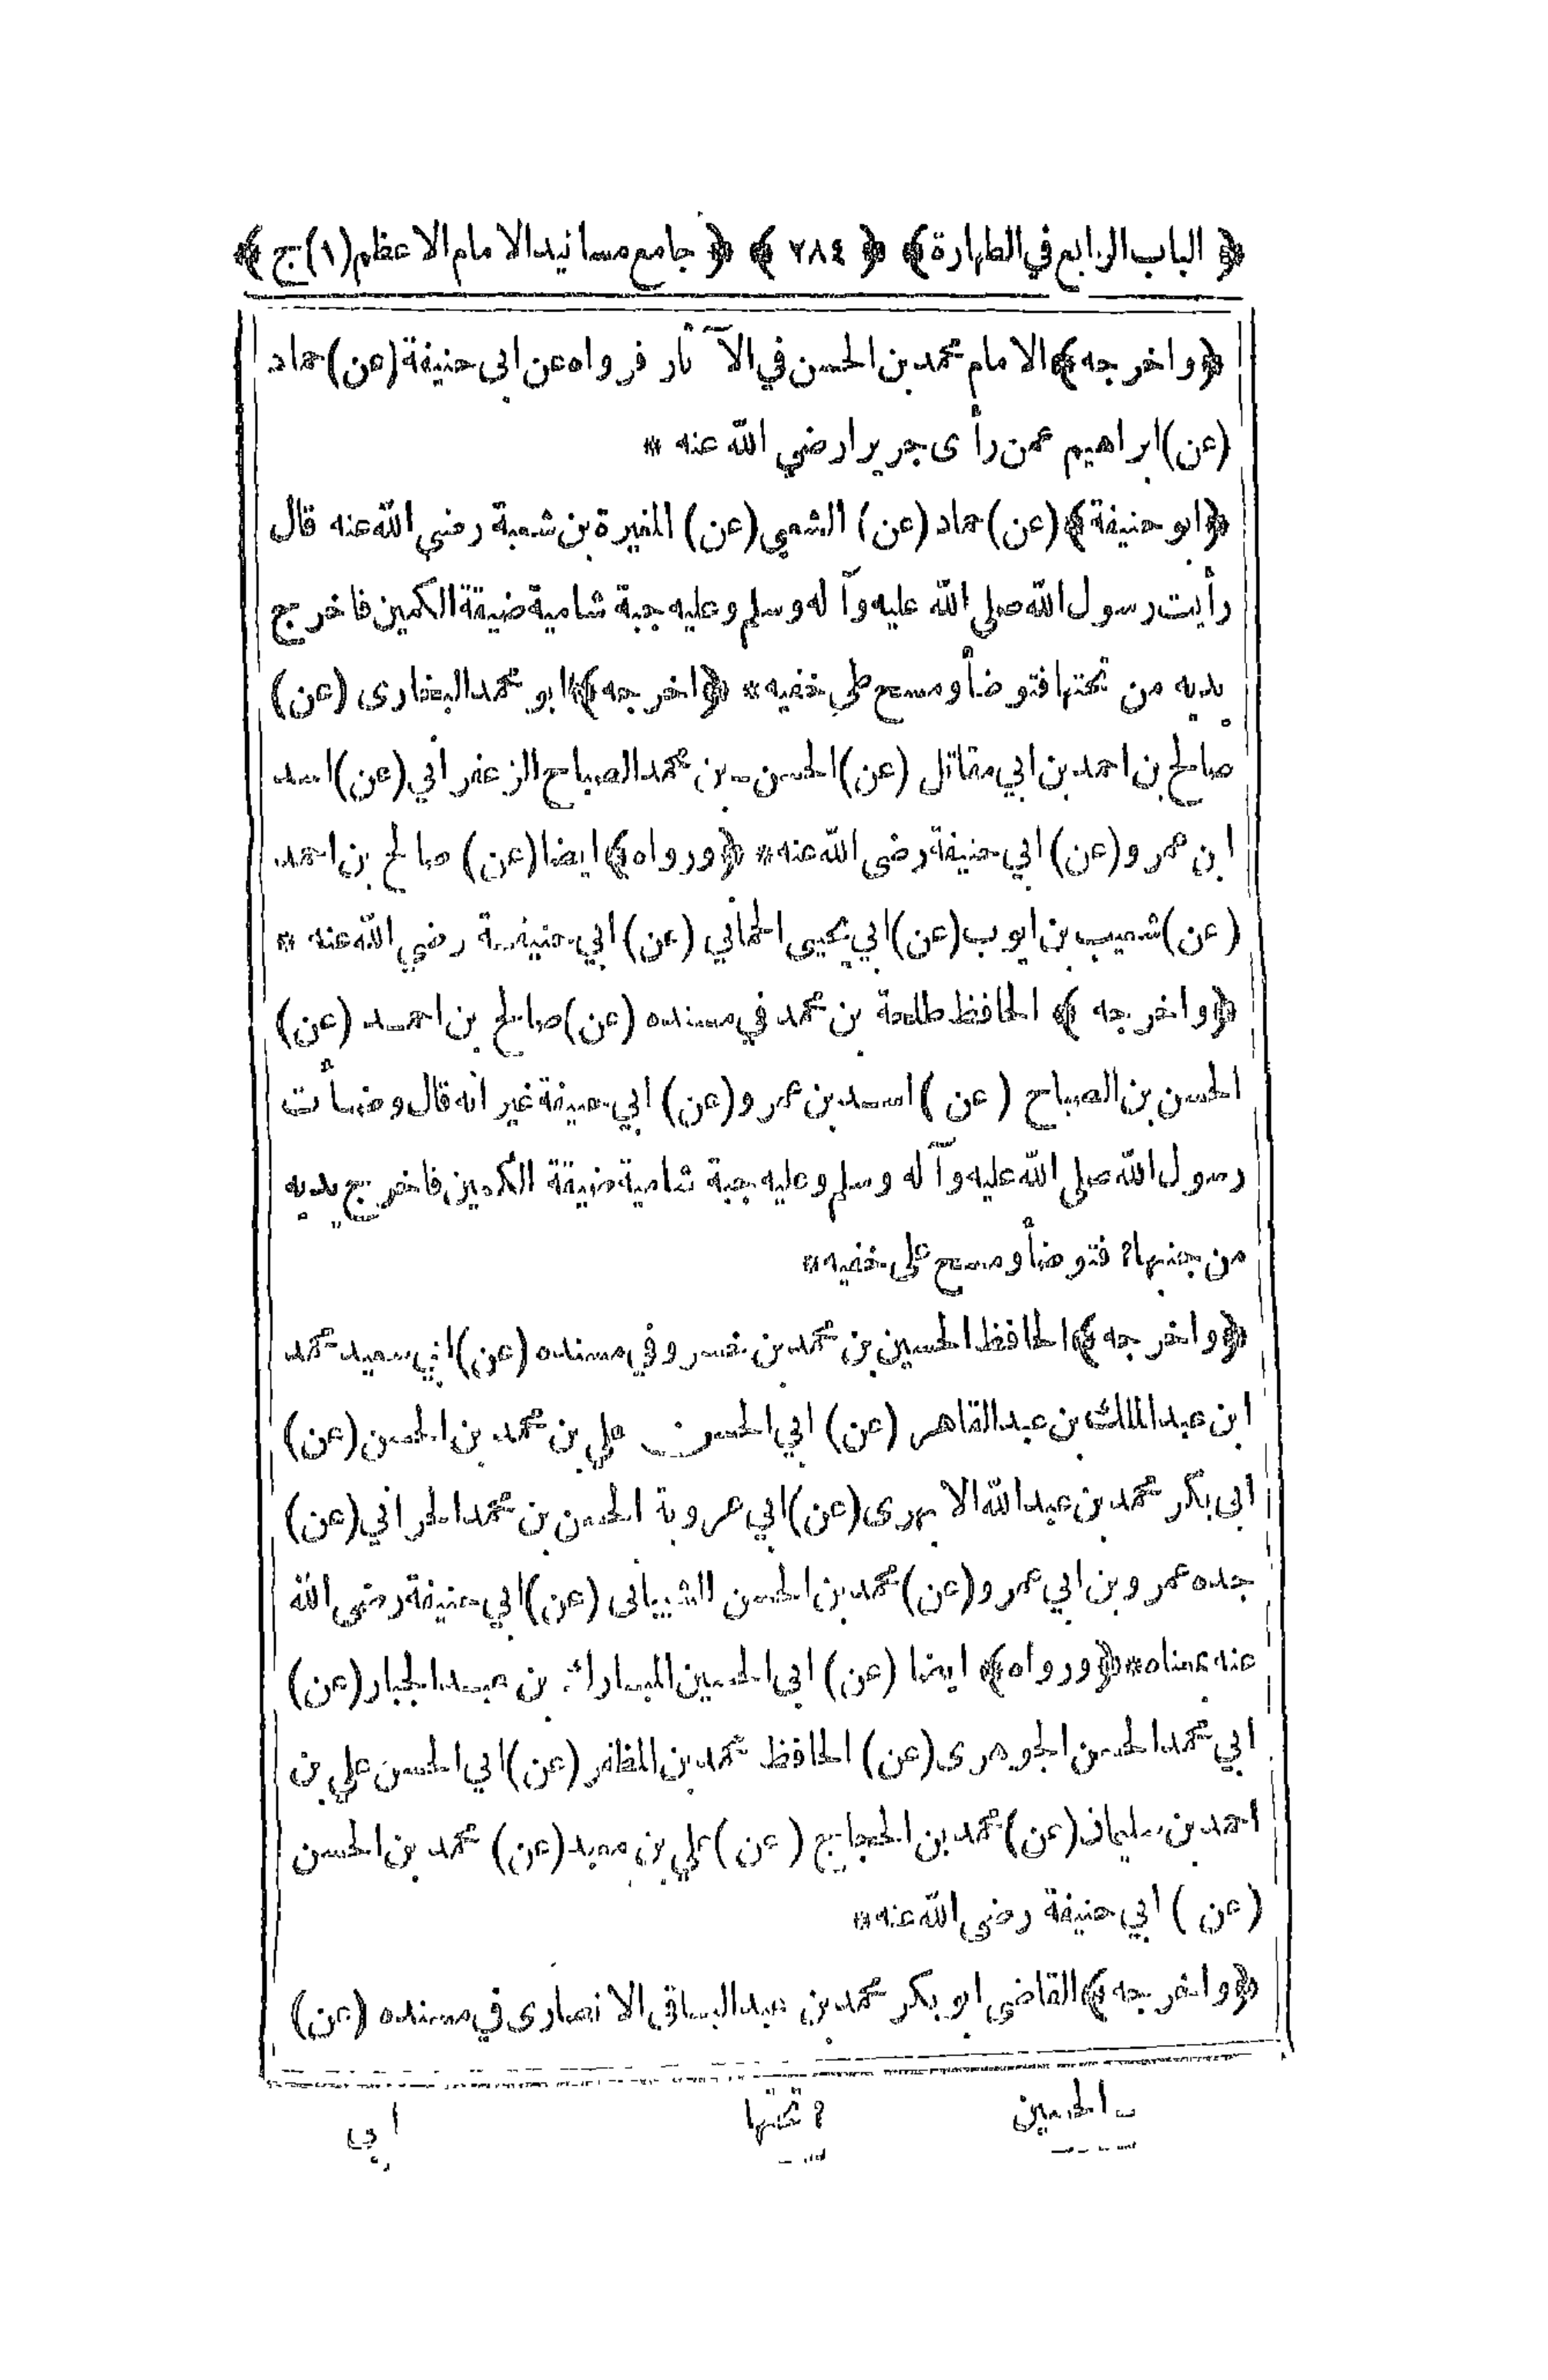 ﴿ الباب الرابع في الطهارة ﴾ ﴿ ٢٨٤ ﴾ ﴿ جامع مسانيد الامام الاعظم (١) ج ﴾
﴿ واخرجه ﴾ الامام محمد بن الحسن في الآثار فرواه عن ابى حنيفة (عن) حماد
(عن) ابراهيم عمن رأى جريرا رضي الله عنه *
﴿ ابو حنيفة ﴾ (عن) حماد (عن) الشعبي (عن) المغيرة بن شعبة رضي الله عنه قال
رأيت رسول الله صلى الله عليه وآله وسلم وعليه جبة شامية ضيقة الكمين فاخرج
يديه من تحتها فتوضأ ومسح على خفيه * ﴿ اخرجه ﴾ ابو محمد البخارى (عن)
صالح بن احمد بن ابي مقاتل (عن) الحسن ـ بن محمد الصباح الزعفراني (عن) اسد
ابن عمرو (عن) ابي حنيفة رضى الله عنه * ﴿ ورواه ﴾ ايضا (عن) صالح بن احمد
(عن) شعيب بن ايوب (عن) ابي يحيى الحماني (عن) ابي حنيفة رضي الله عنه *
﴿ واخرجه ﴾ الحافظ طلحة بن محمد في مسنده (عن) صالح بن احمد (عن)
الحسن بن الصباح (عن) اسد بن عمرو (عن) ابي حنيفة غير انه قال وضأت
رسول الله صلى الله عليه وآله وسلم وعليه جبة شامية ضيقة الكمين فاخرج يديه
من جنبها ? فتوضأ ومسح على خفيه *
﴿ واخرجه ﴾ الحافظ الحسين بن محمد بن خسرو في مسنده (عن) ابي سعيد محمد
ابن عبد الملك بن عبد القاهر (عن) ابي الحسن علي بن محمد بن الحسن (عن)
ابى بكر محمد بن عبد الله الابهرى (عن) ابي عروبة الحسن بن محمد الحراني (عن)
جده عمرو بن ابي عمرو (عن) محمد بن الحسن الشيبانى (عن) ابي حنيفة رضى الله
عنه بمعناه * ﴿ ورواه ﴾ ايضا (عن) ابى الحسين المبارك بن عبد الجبار (عن)
ابي محمد الحسن الجوهرى (عن) الحافظ محمد بن المظفر (عن) ابي الحسن علي بن
احمد بن سليمان (عن) محمد بن الحجاج (عن) علي بن معبد (عن) محمد بن الحسن
(عن) ابي حنيفة رضى الله عنه *
﴿ واخرجه ﴾ القاضى ابو بكر محمد بن عبد الباقى الانصارى في مسنده (عن)
ـ الحسين ? تحتها ابي